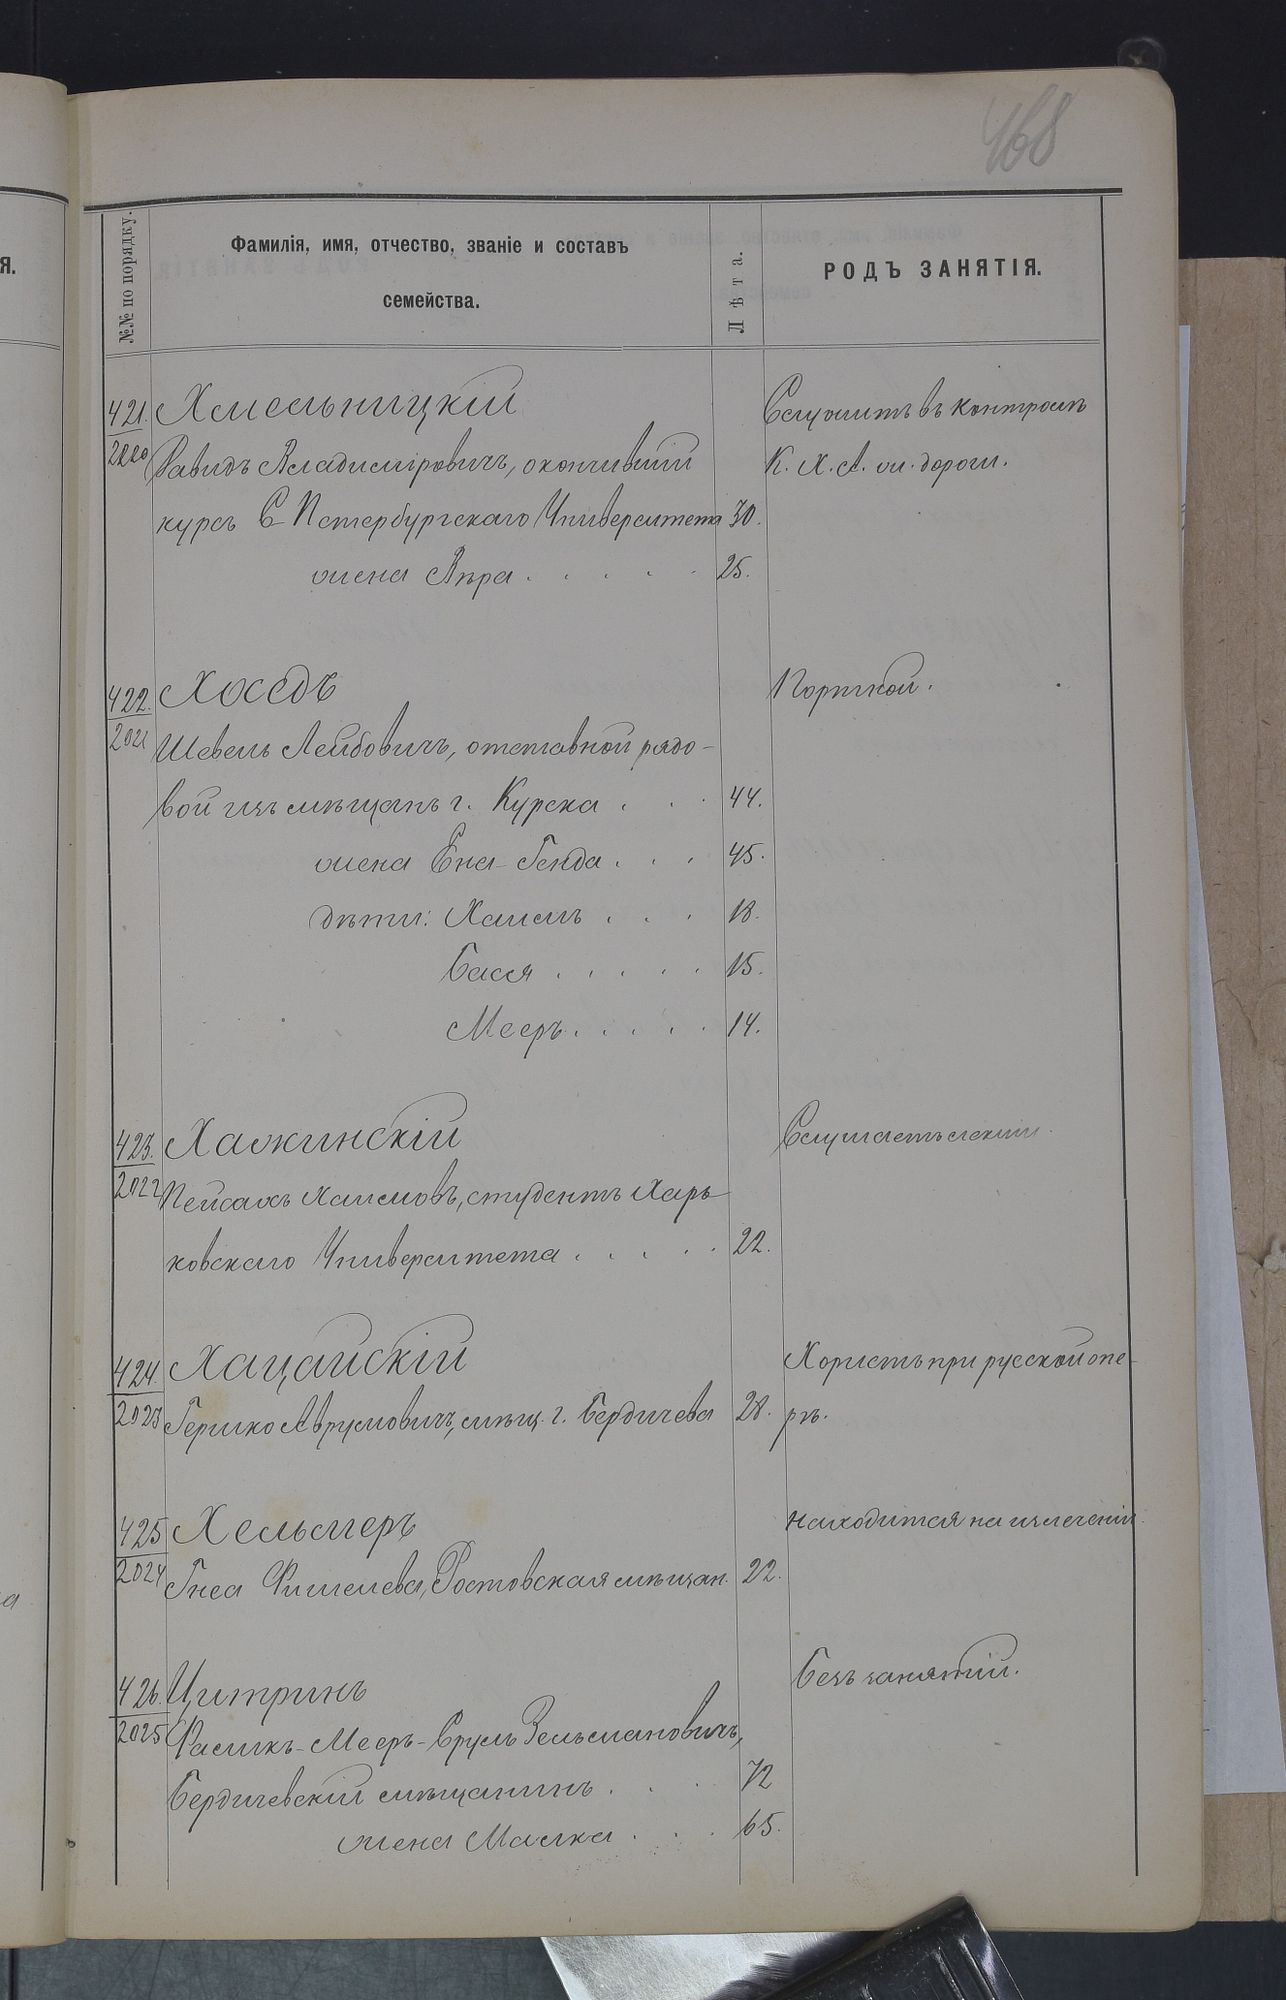 468
Я.
№№ по порядку.
Фамилія, имя, отчество, званіе и составъ
семейства.
Лѣта.
РОДЪ ЗАНЯТІЯ.
421. Хмельницкій Служитъ въ контролѣ
2020 Давидъ Владиміровичъ, окончившій К. Х. А. ж. дороги.
курсъ С-Петербургскаго Университета 30.
жена Вѣра . . . . . 25.
422. Хоседъ Портной.
2021 Шевель Лейбовичъ, отставной рядо-
вой изъ мѣщанъ г. Курска . . . 44.
жена Ена-Генда . . . 45.
дѣти: Хаимъ . . . 18.
Бася . . . . . 15.
Мееръ . . . . . 14.
423. Хажинскій Слушаетъ лекціи.
2022 Пейсахъ Хаимовъ, студентъ Харь-
ковскаго Университета . . . . . 22.
424. Хацайскій Хористъ при русской опе-
2023 Гершко Аврумовичъ, мѣщ. г. Бердичева 28. рѣ.
425 Хельмеръ Находится на излеченіи.
2024 Гнеа Фишелева, Ростовская мѣщан. 22.
426. Цитринъ Безъ занятій.
2025 Фасикъ-Мееръ-Сруль Зельмановичъ,
Бердичевскій мѣщанинъ . . . 72
жена Малка . . . 65.
а